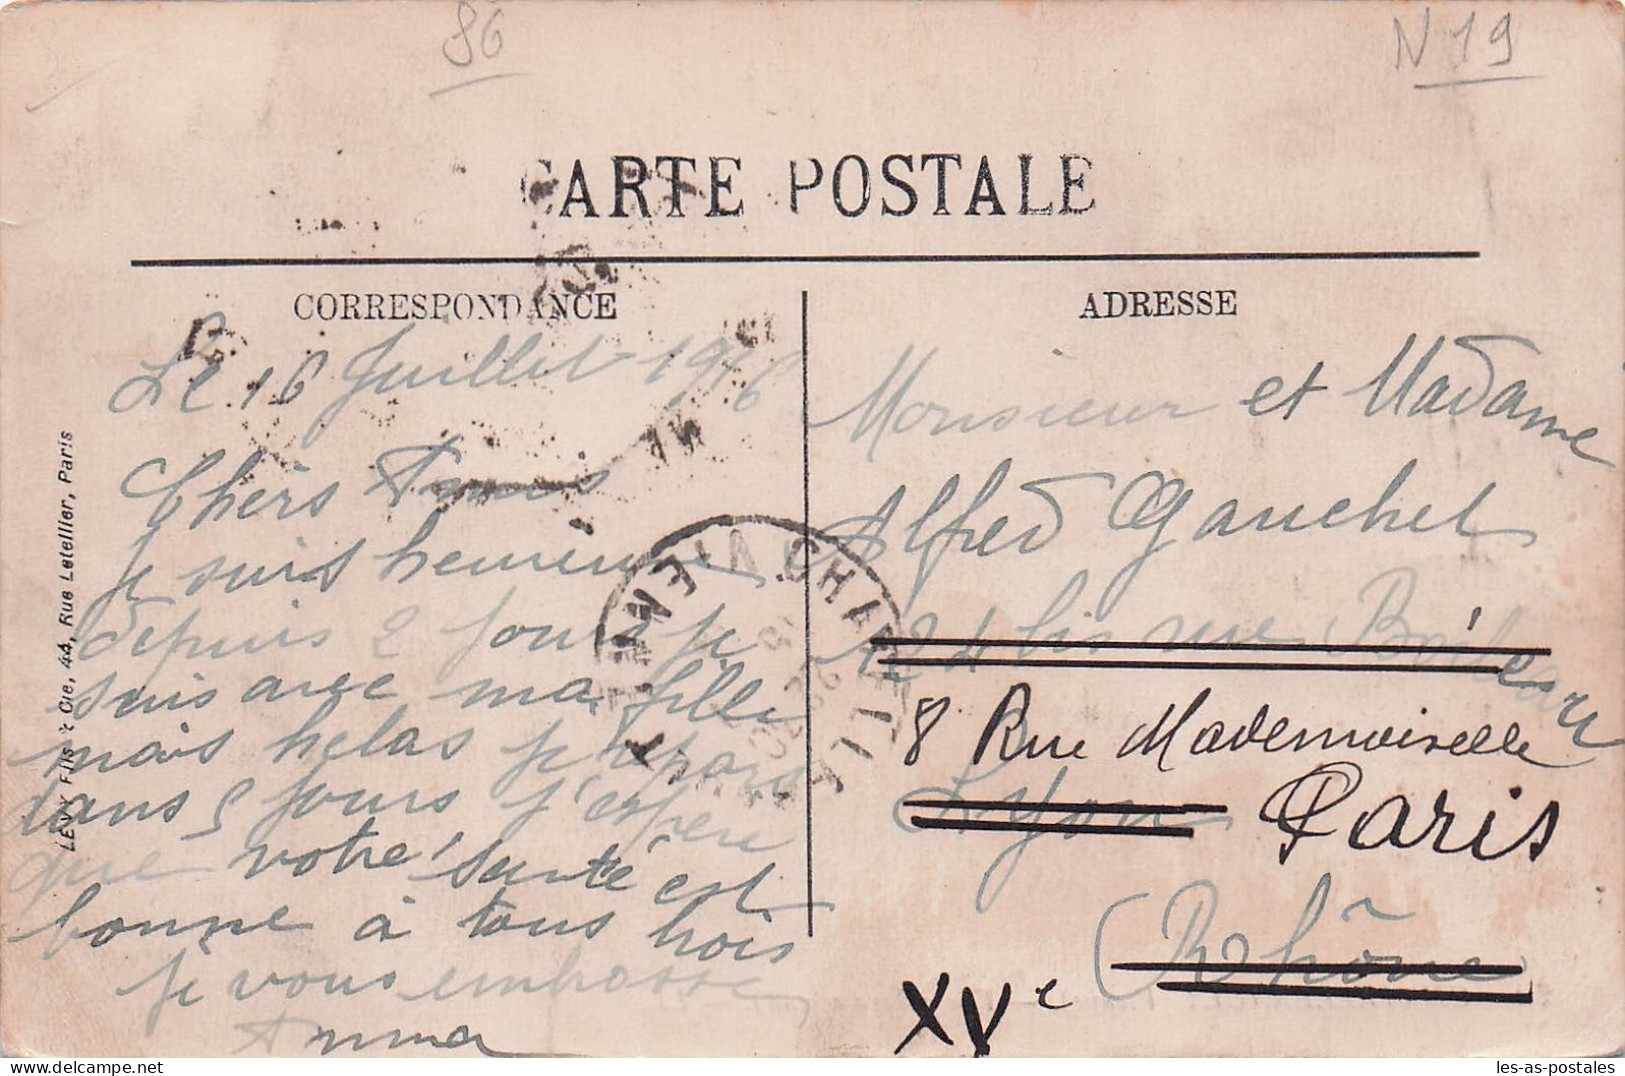 86
N 19
CARTE POSTALE
CORRESPONDANCE
ADRESSE
Le 16 Juillet 1916
Chers Amis
je suis heureuse
depuis 2 jours je
suis avec ma fille
mais helas je repars
dans 5 jours j'espere
que votre santé est
bonne à tous trois
je vous embrasse
Anna
Monsieur et Madame
Alfred Gauchet
24 bis rue Boileau
8 Rue Mademoiselle
Lyon Paris
(Rhône)
XVe
LEVY Fils & Cie, 44, Rue Letellier, Paris
VIENNE
les-as-postales